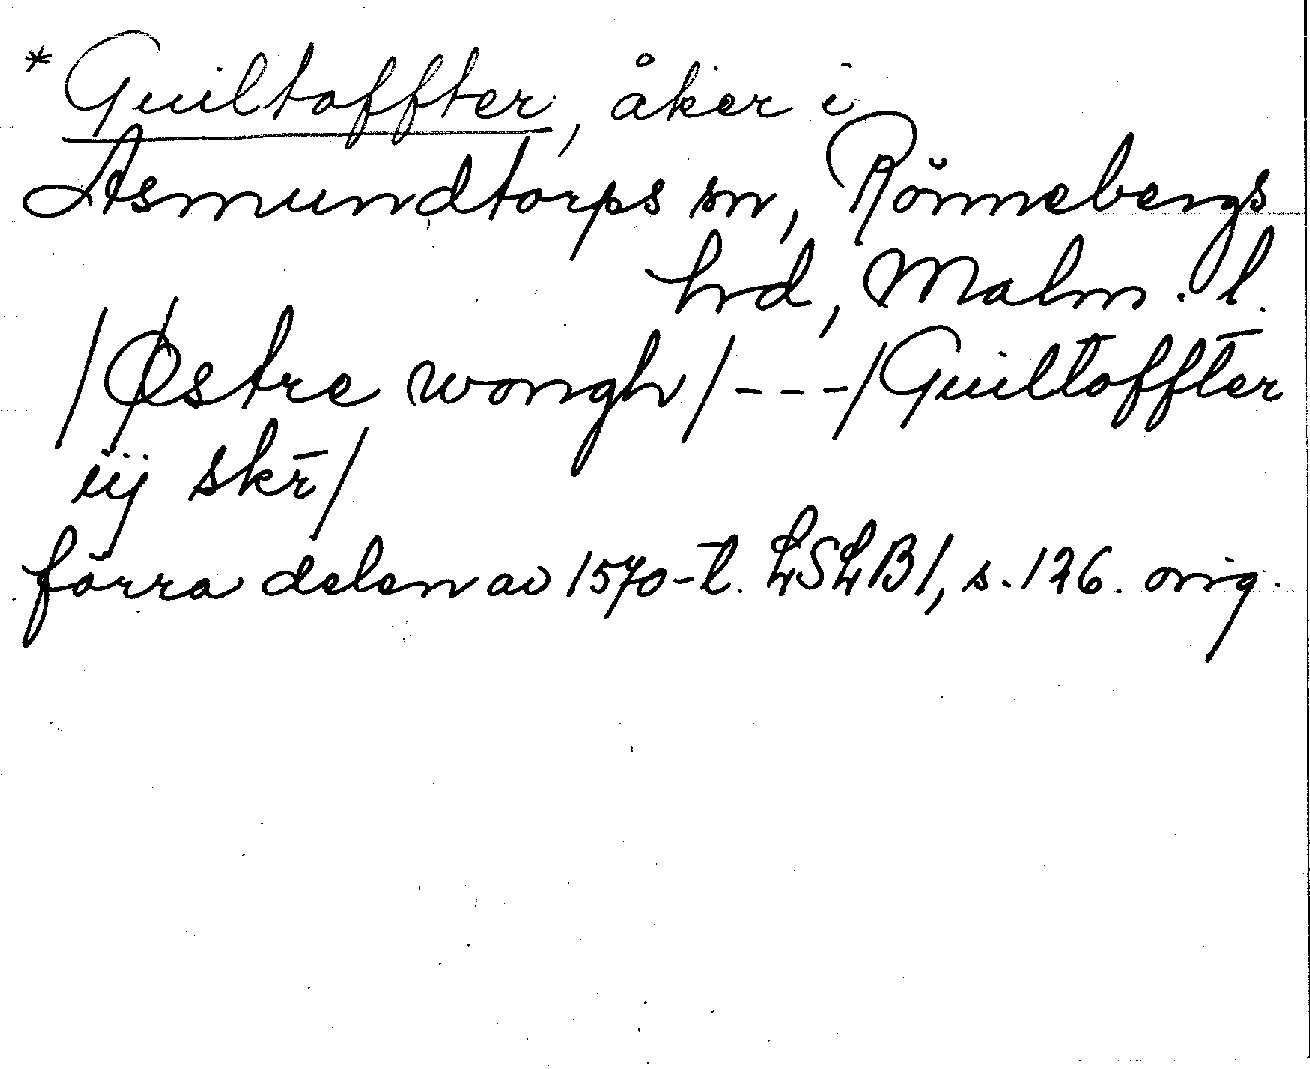 * Guiltoffter, åker i
Asmundtorps sn, Rönnebergs
hrd, Malm. l.
/Østre wongh/---/Guiltoffter
iij skr̄/
förra delen av 1570-t. LSLB1, s. 126. orig.